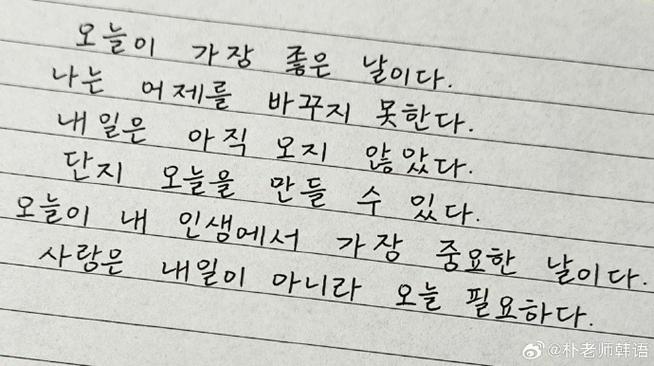 오늘이 가장 좋은 날이다.
나는 어제를 바꾸지 못한다.
내일은 아직 오지 않았다.
단지 오늘을 만들 수 있다.
오늘이 내 인생에서 가장 중요한 날이다.
사랑은 내일이 아니라 오늘 필요하다.
@朴老师韩语